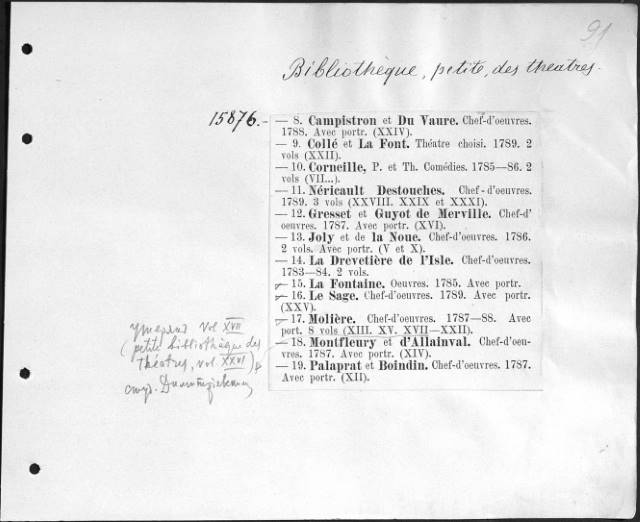 91
Bibliothèque, petite, des theatres.
15876.
— 8. Campistron et Du Vaure. Chef-d'oeuvres.
1788. Avec portr. (XXIV).
— 9. Collé et La Font. Théatre choisi. 1789. 2
vols (XXII).
— 10. Corneille, P. et Th. Comédies. 1785—86. 2
vols (VII...).
— 11. Néricault Destouches. Chef-d'oeuvres.
1789. 3 vols (XXVIII. XXIX et XXXI).
— 12. Gresset et Guyot de Merville. Chef-d'
oeuvres. 1787. Avec portr. (XVI).
— 13. Joly et de la Noue. Chef-d'oeuvres. 1786.
2 vols. Avec portr. (V et X).
— 14. La Drevetière de l'Isle. Chef-d'oeuvres.
1783—84. 2 vols.
— 15. La Fontaine. Oeuvres. 1785. Avec portr.
— 16. Le Sage. Chef-d'oeuvres. 1789. Avec portr.
(XXV).
— 17. Molière. Chef-d'oeuvres. 1787—88. Avec
port. 8 vols (XIII. XV. XVII—XXII).
— 18. Montfleury et d'Allainval. Chef-d'oeu-
vres. 1787. Avec portr. (XIV).
— 19. Palaprat et Boindin. Chef-d'oeuvres. 1787.
Avec portr. (XII).
Vol XVII
(petite bibliothèque des
Théatres, vol. XXVI)